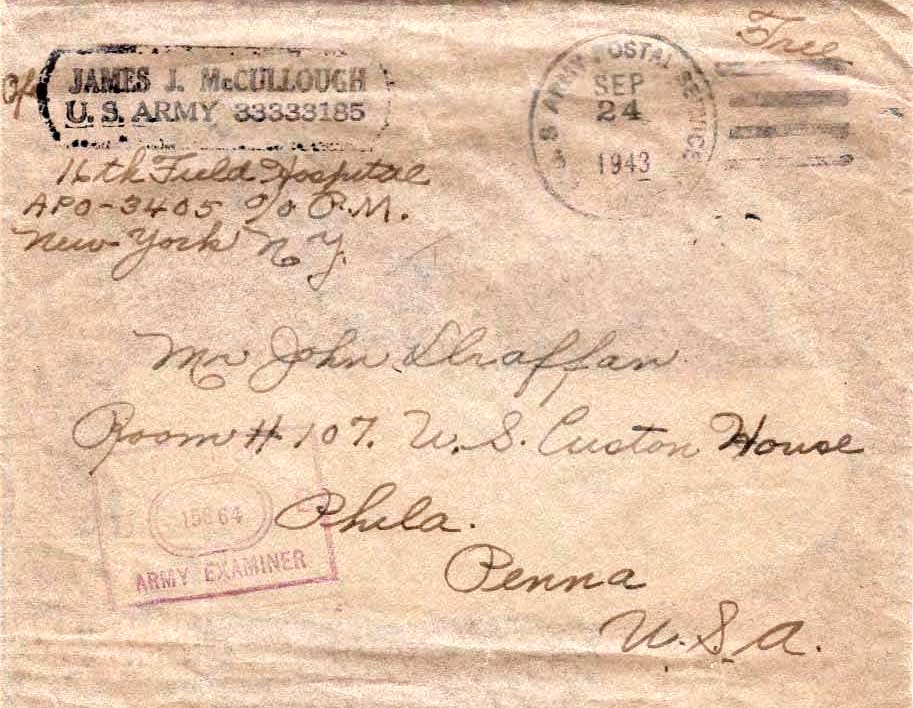 Free
JAMES J. McCULLOUGH
U. S. ARMY 33333185
16th Field Hospital
APO-3405 c/o P.M.
New York N.Y.
U.S. ARMY POSTAL SERVICE
SEP
24
1943
Mr John
Room # 107. U.S. Custon House
Phila.
Penna
U.S.A.
ARMY EXAMINER